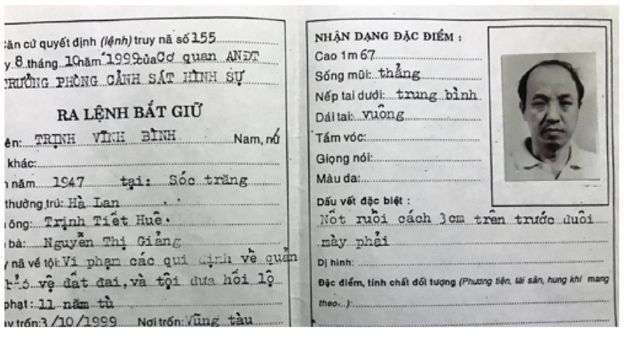 Căn cứ quyết định (lệnh) truy nã số 155
y 8 tháng 10 năm 1999 của Cơ quan ANĐT
TRƯỞNG PHÒNG CẢNH SÁT HÌNH SỰ
RA LỆNH BẮT GIỮ
ên: TRỊNH VĨNH BÌNH Nam, nữ
khác:
n năm 1947 tại: Sóc trăng
thường trú: Hà Lan
ông: Trịnh Tiết Huê.
bà: Nguyễn Thị Giảng
y nã về tội: Vi phạm các qui định về quản
bảo vệ đất đai, và tội đưa hối lộ
phạt: 11 năm tù
y trốn: 3/10/1999 Nơi trốn: Vũng tàu
NHẬN DẠNG ĐẶC ĐIỂM :
Cao 1m 67
Sống mũi: thẳng
Nếp tai dưới: trung bình
Dái tai: vuông
Tầm vóc:
Giọng nói:
Màu da:
Dấu vết đặc biệt :
Nốt ruồi cách 3cm trên trước đuôi
mày phải
Dị hình:
Đặc điểm, tính chất đối tượng (Phương tiện, tài sản, hung khí mang
theo...):